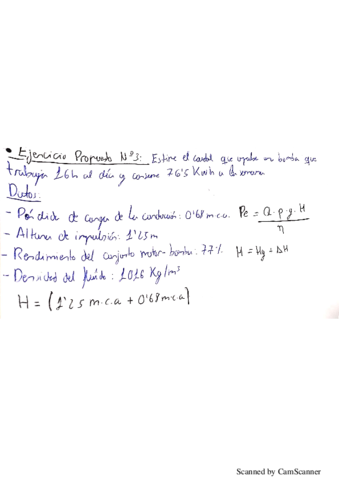 • Ejercicio Propuesto Nº3: Estime el caudal que impulsa una bomba que
trabaja 16h al día y consume 76'5 Kwh a la semana.
Datos:
- Pérdida de cargas de la conducción: 0'68 m.c.a. Pe = Q·ρ·g·H / η
- Altura de impulsión: 1'25m
- Rendimiento del conjunto motor-bomba: 77% H = Hg + ΔH
- Densidad del fluido: 1026 Kg/m³
H = (1'25 m.c.a + 0'68 m.c.a)
Scanned by CamScanner